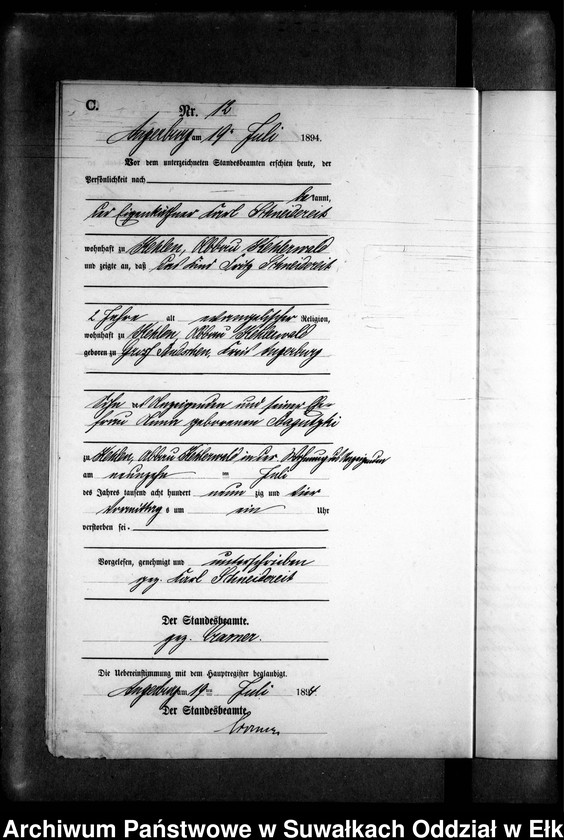 C.
Nr. 12
Angerburg am 19. Juli 1894.
Vor dem unterzeichneten Standesbeamten erschien heute, der
Persönlichkeit nach
be kannt,
der Eigenkäthner Karl Schneidereit
wohnhaft zu Kehlen, Abbau Kehlerwald
und zeigte an, daß das Kind Fritz Schneidereit
2 Jahre alt evangelischer Religion,
wohnhaft zu Kehlen, Abbau Kehlerwald
geboren zu Groß Kreis Angerburg
Sohn des Anzeigenden und seiner Ehe-
frau geborenen
zu Kehlen, Abbau Kehlerwald in der Wohnung des Anzeigenden
am neunzehn ten Juli
des Jahres tausend acht hundert neun zig und vier
Vormittag s um ein Uhr
verstorben sei.
Vorgelesen, genehmigt und unterschrieben
gez. Karl Schneidereit
Der Standesbeamte.
gez. Cramer.
Die Uebereinstimmung mit dem Hauptregister beglaubigt.
Angerburg am 19ten Juli 1894
Der Standesbeamte.
Cramer
Archiwum Państwowe w Suwałkach Oddział w Ełk